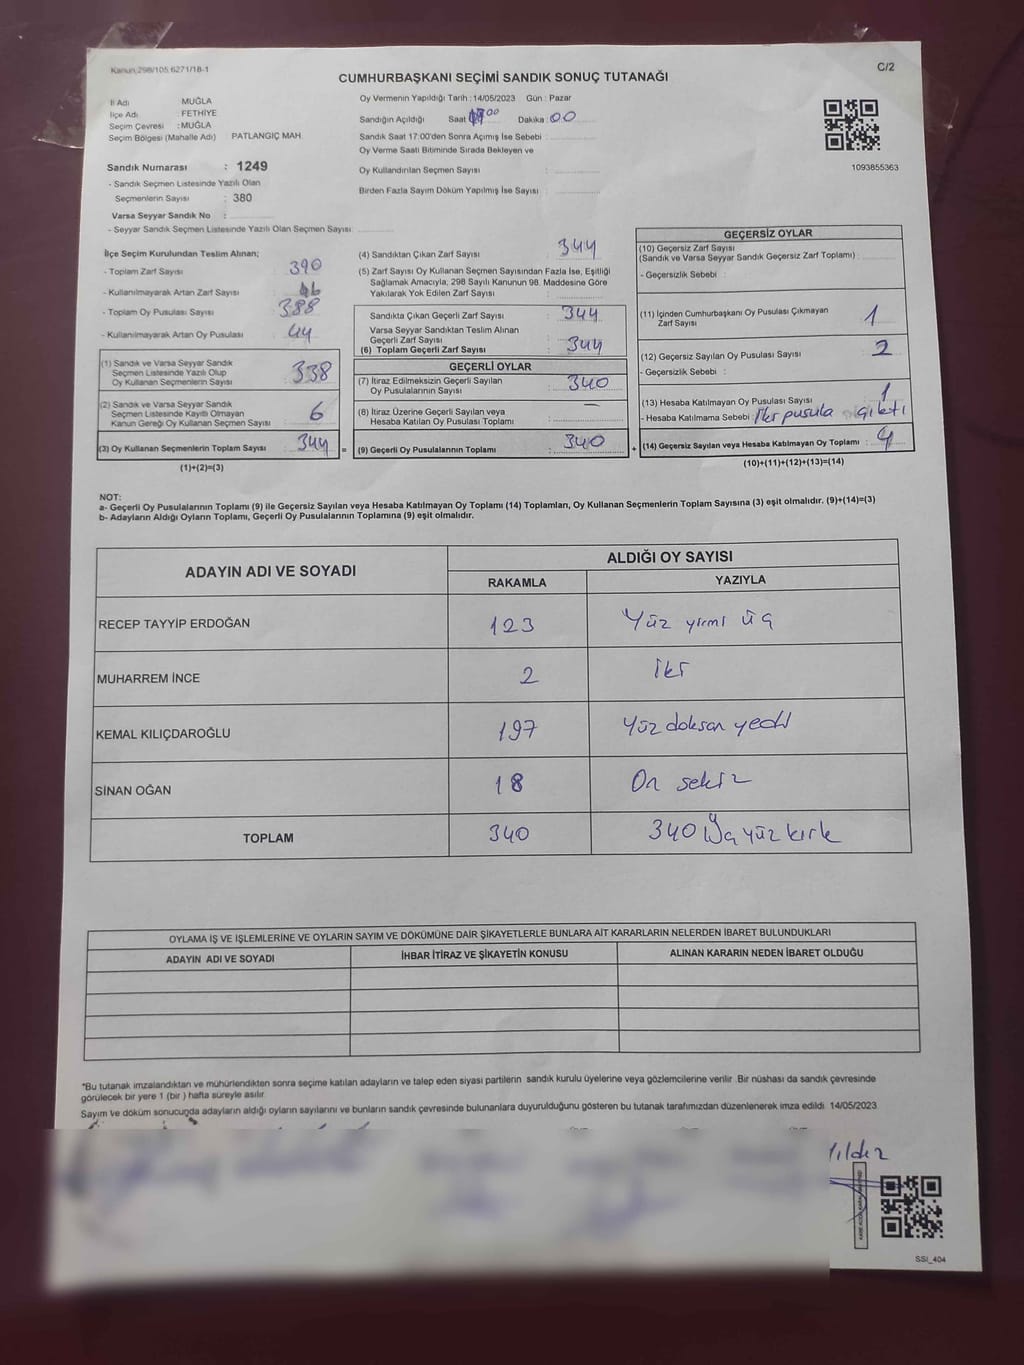 Kanun:298/105.6271/18-1
C/2
CUMHURBAŞKANI SEÇİMİ SANDIK SONUÇ TUTANAĞI
İl Adı MUĞLA
İlçe Adı : FETHİYE
Seçim Çevresi : MUĞLA
Seçim Bölgesi (Mahalle Adı) : PATLANGIÇ MAH.
Sandık Numarası : 1249
- Sandık Seçmen Listesinde Yazılı Olan
Seçmenlerin Sayısı : 380
Varsa Seyyar Sandık No :
- Seyyar Sandık Seçmen Listesinde Yazılı Olan Seçmen Sayısı:
Oy Vermenin Yapıldığı Tarih : 14/05/2023 Gün : Pazar
Sandığın Açıldığı Saat Dakika : 00
Sandık Saat 17:00'den Sonra Açımış İse Sebebi :
Oy Verme Saati Bitiminde Sırada Bekleyen ve
Oy Kullandırılan Seçmen Sayısı :
Birden Fazla Sayım Döküm Yapılmış İse Sayısı :
1093855363
İlçe Seçim Kurulundan Teslim Alınan;
- Toplam Zarf Sayısı : 390
- Kullanılmayarak Artan Zarf Sayısı : 46
- Toplam Oy Pusulası Sayısı : 388
- Kullanılmayarak Artan Oy Pusulası : 44
(1) Sandık ve Varsa Seyyar Sandık
Seçmen Listesinde Yazılı Olup
Oy Kullanan Seçmenlerin Sayısı : 338
(2) Sandık ve Varsa Seyyar Sandık
Seçmen Listesinde Kayıtlı Olmayan
Kanun Gereği Oy Kullanan Seçmen Sayısı : 6
(3) Oy Kullanan Seçmenlerin Toplam Sayısı : 344 =
(1)+(2)=(3)
(4) Sandıktan Çıkan Zarf Sayısı : 344
(5) Zarf Sayısı Oy Kullanan Seçmen Sayısından Fazla İse, Eşitliği
Sağlamak Amacıyla, 298 Sayılı Kanunun 98. Maddesine Göre
Yakılarak Yok Edilen Zarf Sayısı :
Sandıkta Çıkan Geçerli Zarf Sayısı : 344
Varsa Seyyar Sandıktan Teslim Alınan
Geçerli Zarf Sayısı :
(6) Toplam Geçerli Zarf Sayısı : 344
GEÇERLİ OYLAR
(7) İtiraz Edilmeksizin Geçerli Sayılan
Oy Pusulalarının Sayısı : 340
(8) İtiraz Üzerine Geçerli Sayılan veya
Hesaba Katılan Oy Pusulası Toplamı : —
(9) Geçerli Oy Pusulalarının Toplamı : 340 +
GEÇERSİZ OYLAR
(10) Geçersiz Zarf Sayısı
(Sandık ve Varsa Seyyar Sandık Geçersiz Zarf Toplamı) :
- Geçersizlik Sebebi :
(11) İçinden Cumhurbaşkanı Oy Pusulası Çıkmayan
Zarf Sayısı : 1
(12) Geçersiz Sayılan Oy Pusulası Sayısı : 2
- Geçersizlik Sebebi :
(13) Hesaba Katılmayan Oy Pusulası Sayısı : 1
- Hesaba Katılmama Sebebi : İki pusula çıktı
(14) Geçersiz Sayılan veya Hesaba Katılmayan Oy Toplamı : 4
(10)+(11)+(12)+(13)=(14)
NOT:
a- Geçerli Oy Pusulalarının Toplamı (9) ile Geçersiz Sayılan veya Hesaba Katılmayan Oy Toplamı (14) Toplamları, Oy Kullanan Seçmenlerin Toplam Sayısına (3) eşit olmalıdır. (9)+(14)=(3)
b- Adayların Aldığı Oyların Toplamı, Geçerli Oy Pusulalarının Toplamına (9) eşit olmalıdır.
ADAYIN ADI VE SOYADI
ALDIĞI OY SAYISI
RAKAMLA YAZIYLA
RECEP TAYYİP ERDOĞAN 123 Yüz yirmi üç
MUHARREM İNCE 2 İki
KEMAL KILIÇDAROĞLU 197 Yüz doksan yedi
SİNAN OĞAN 18 On sekiz
TOPLAM 340 340 Üç yüz kırk
OYLAMA İŞ VE İŞLEMLERİNE VE OYLARIN SAYIM VE DÖKÜMÜNE DAİR ŞİKAYETLERLE BUNLARA AİT KARARLARIN NELERDEN İBARET BULUNDUKLARI
ADAYIN ADI VE SOYADI İHBAR İTİRAZ VE ŞİKAYETİN KONUSU ALINAN KARARIN NEDEN İBARET OLDUĞU
*Bu tutanak imzalandıktan ve mühürlendikten sonra seçime katılan adayların ve talep eden siyasi partilerin sandık kurulu üyelerine veya gözlemcilerine verilir. Bir nüshası da sandık çevresinde
görülecek bir yere 1 (bir ) hafta süreyle asılır.
Sayım ve döküm sonucunda adayların aldığı oyların sayılarını ve bunların sandık çevresinde bulunanlara duyurulduğunu gösteren bu tutanak tarafımızdan düzenlenerek imza edildi. 14/05/2023
Yıldız
SSI_404